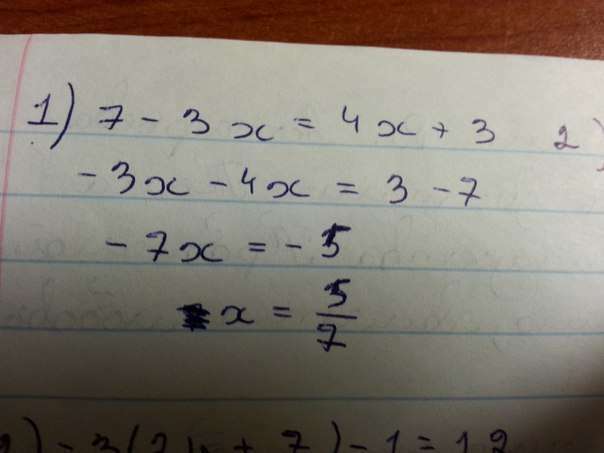 1) 7 - 3x = 4x + 3 2)
-3x - 4x = 3 - 7
-7x = -5
x = 5/7
) - 3(2 + 7) - 1 = 12